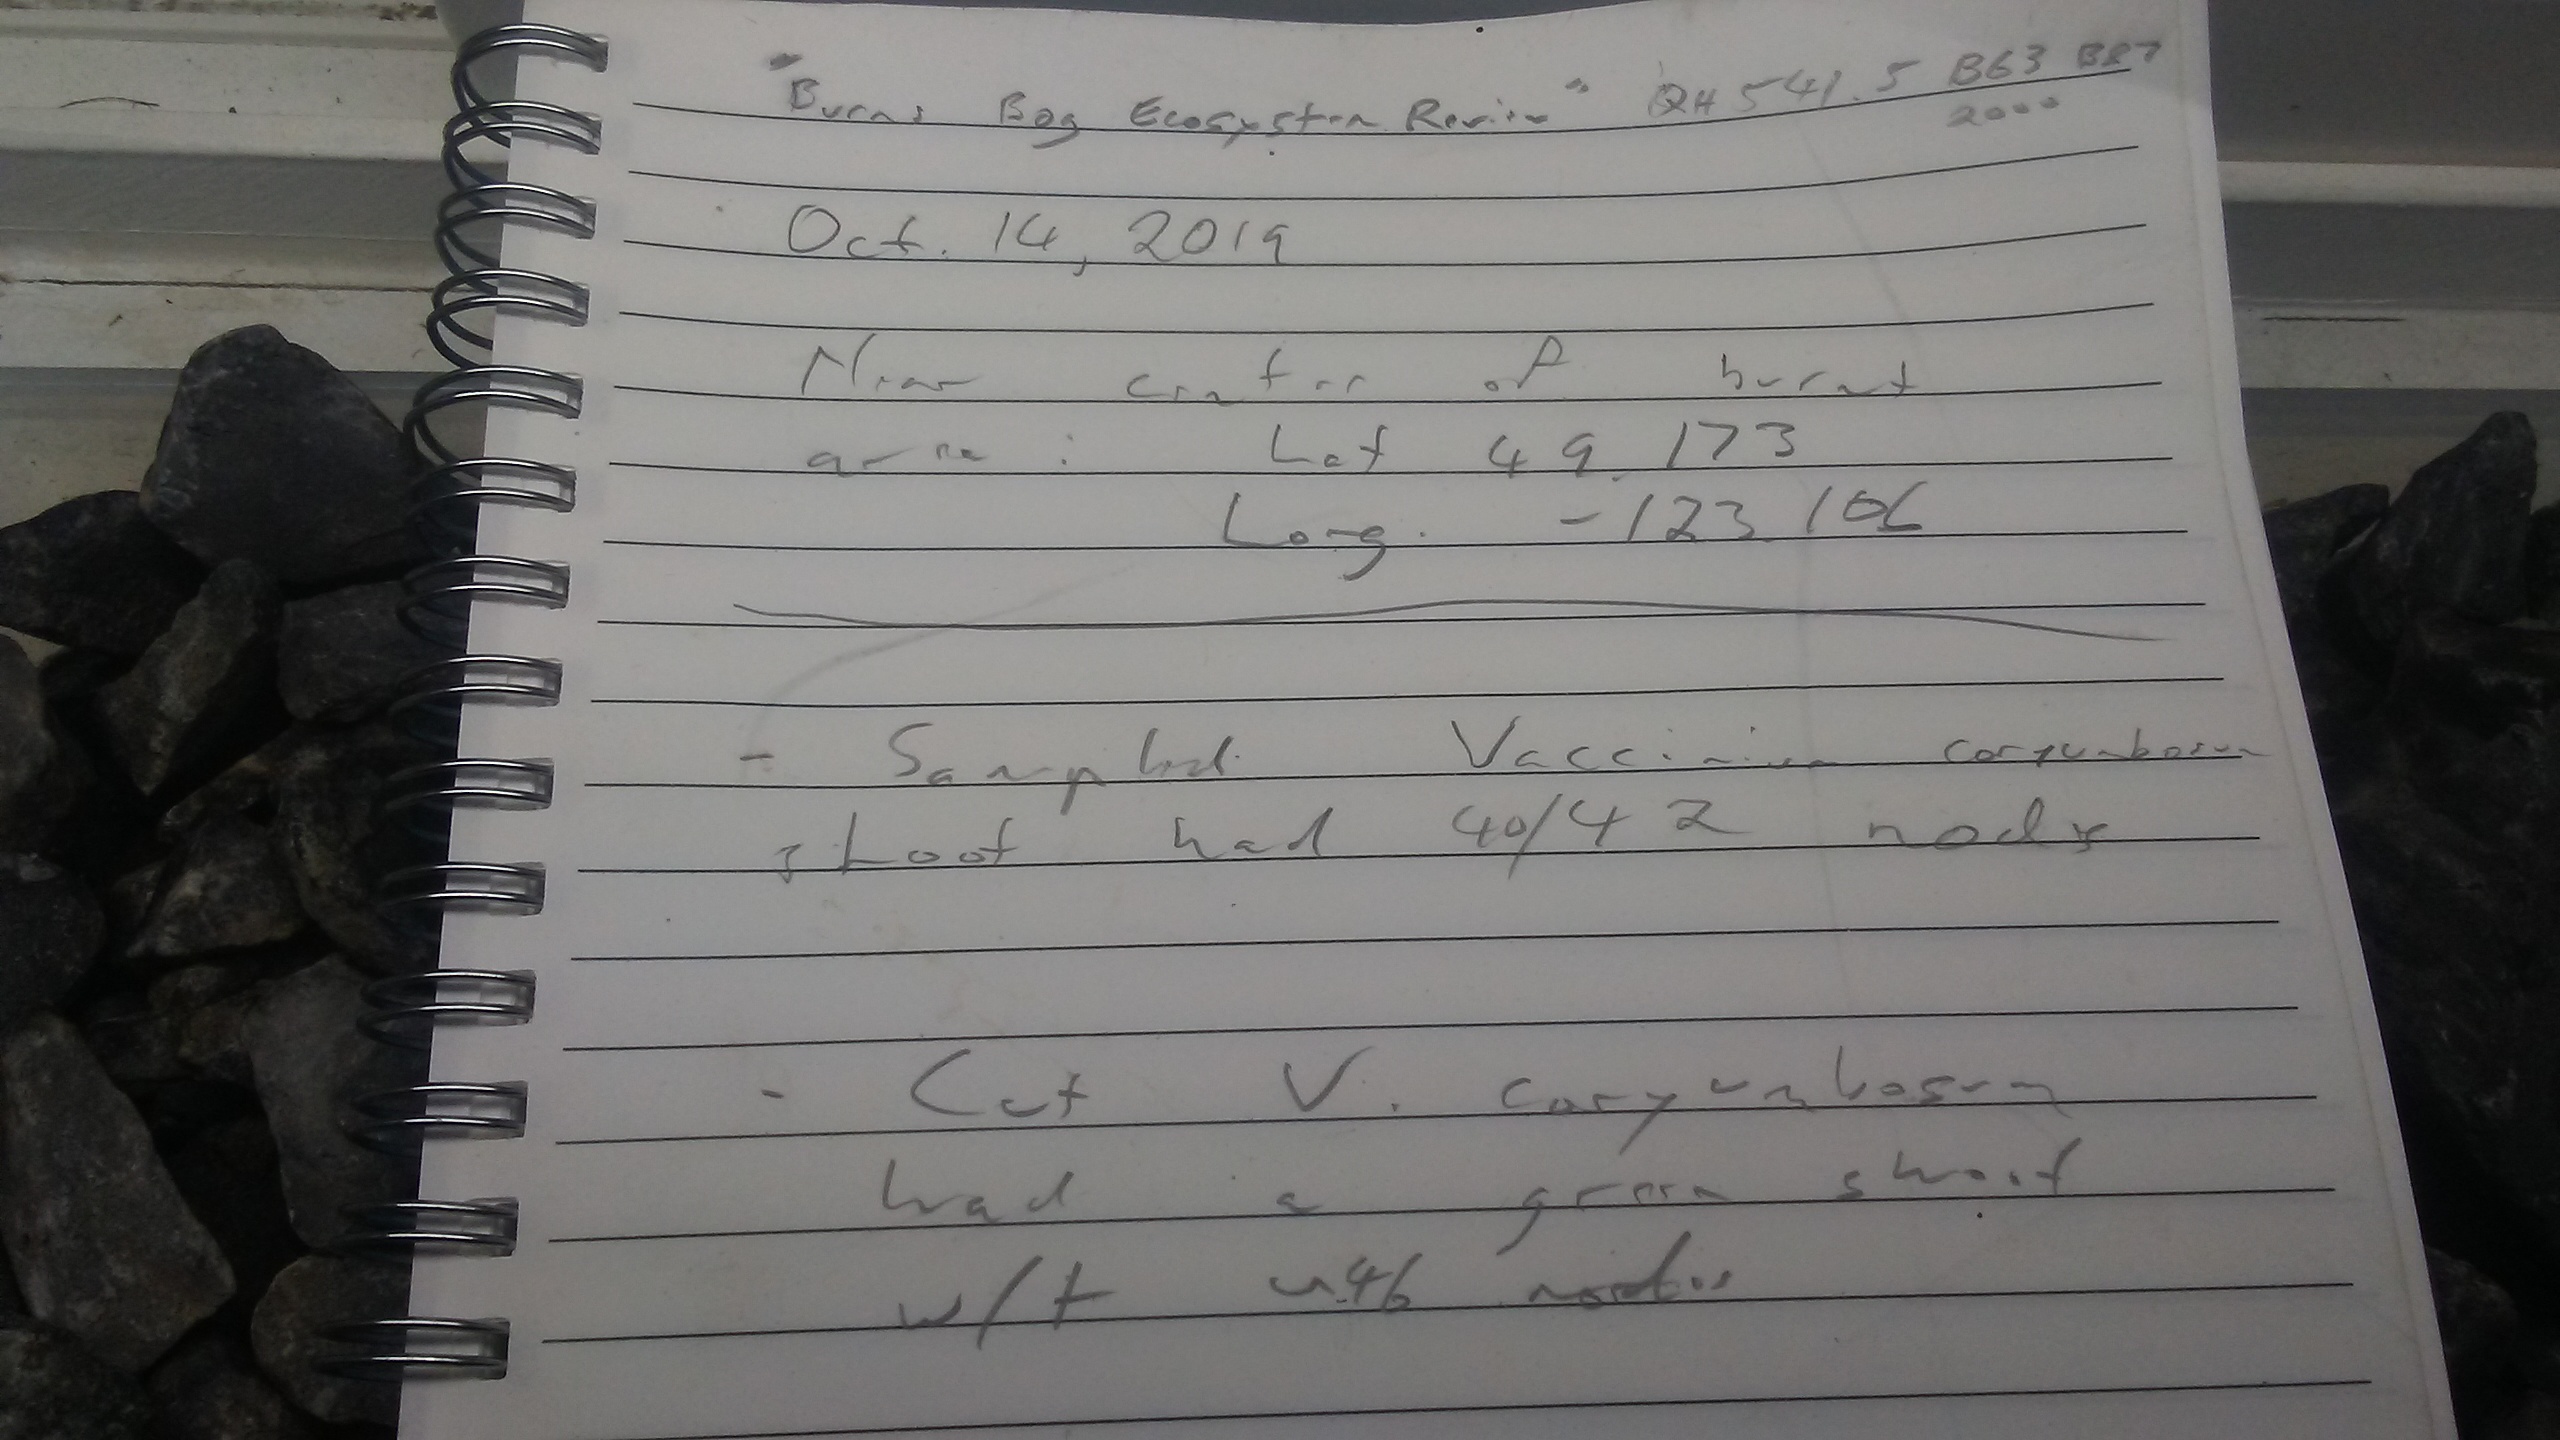 "Burns Bog Ecosystem Review" QH 541.5 B63 B87
2000
Oct. 14, 2019
Near center of burnt
area: Lat 49.173
Long. -123.106
- Sampled Vaccinium corymbosum
shoot had 40/42 nodes
- Cut V. corymbosum
had a green shoot
w/t 46 nodes